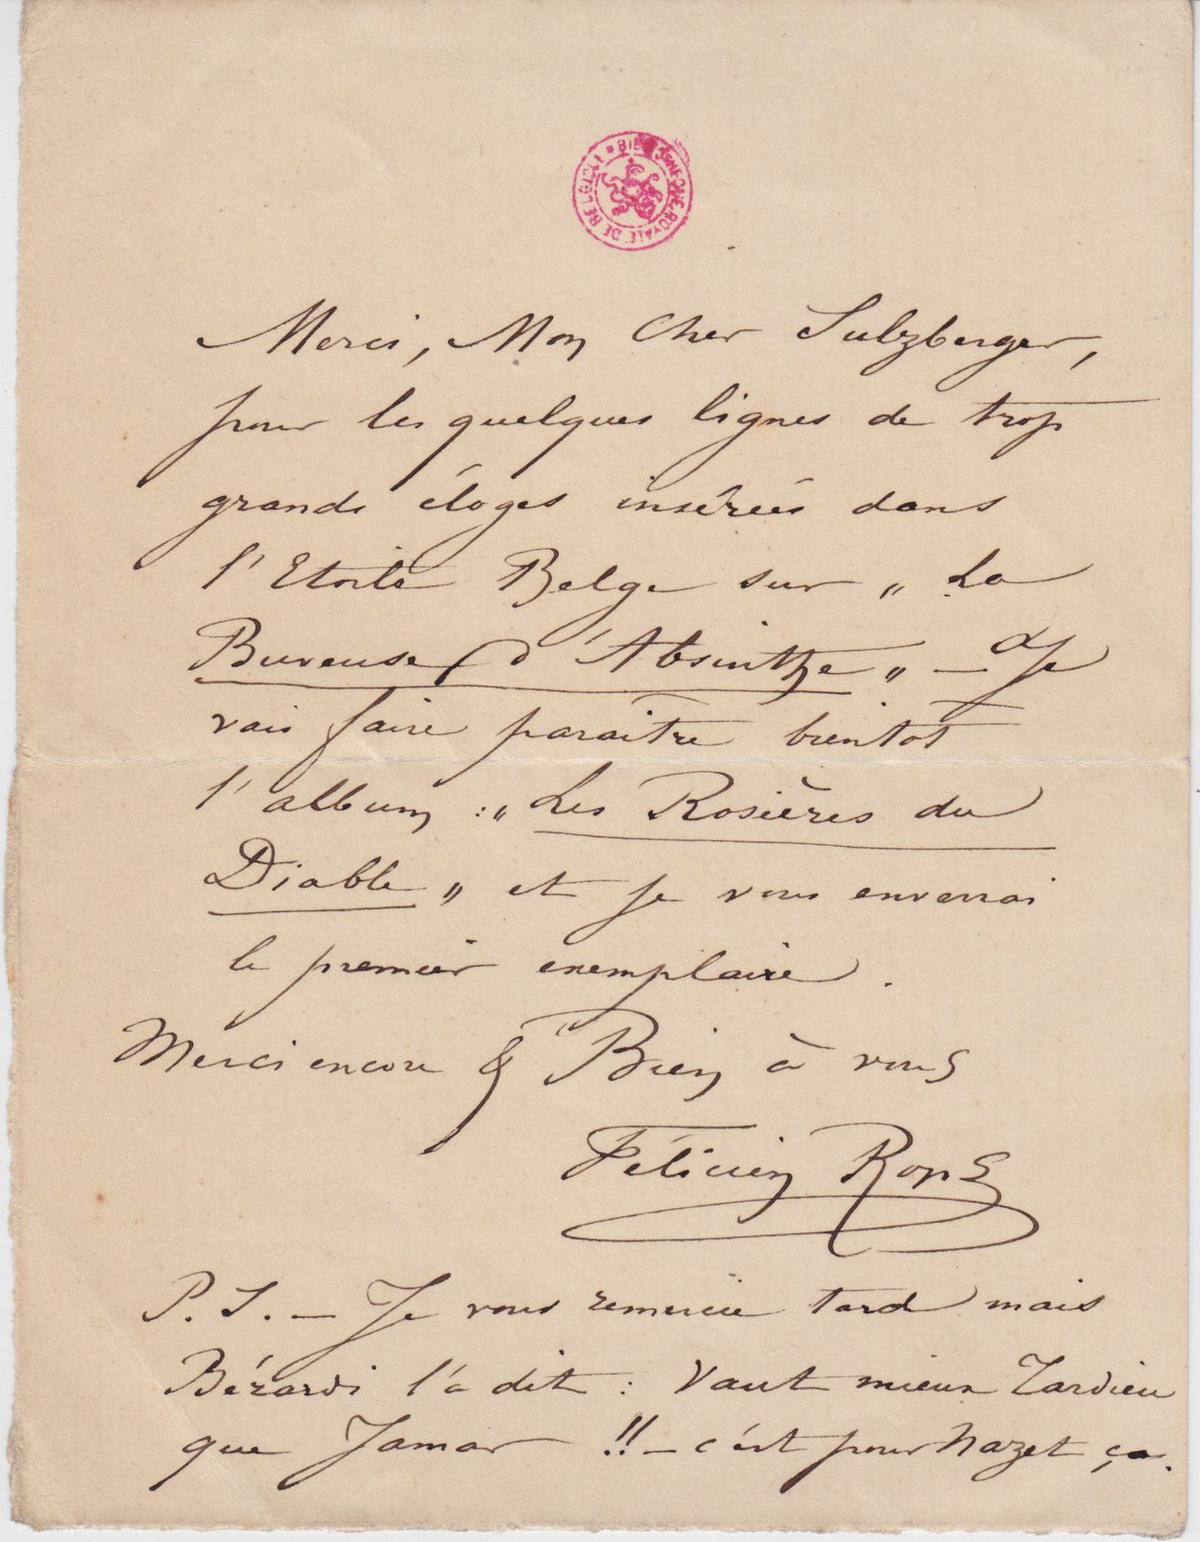 BIBLIOTHEQUE ROYALE DE BELGIQUE
Merci, Mon Cher Sulzberger,
pour les quelques lignes de trop
grands éloges insérées dans
l'Etoile Belge sur „ La
Buveuse d'Absinthe „ — Je
vais faire paraitre bientot
l'album : „ Les Rosières du
Diable „ et je vous enverrai
le premier exemplaire.
Merci encore & Bien à vous
Félicien Rops
P. S. — Je vous remercie tard mais
Bérardi l'a dit : Vaut mieux Tardieu
que Jamar !! — c'est pour Nazet ça.